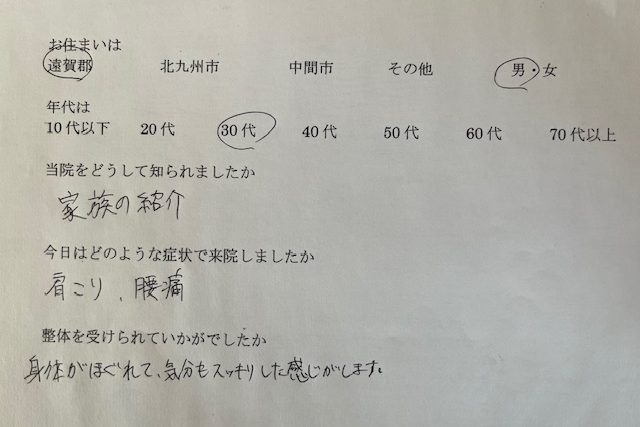 お住まいは
遠賀郡 北九州市 中間市 その他 男・女
年代は
10代以下 20代 30代 40代 50代 60代 70代以上
当院をどうして知られましたか
家族の紹介
今日はどのような症状で来院しましたか
肩こり、腰痛
整体を受けられていかがでしたか
身体がほぐれて、気分もスッキリした感じがします。